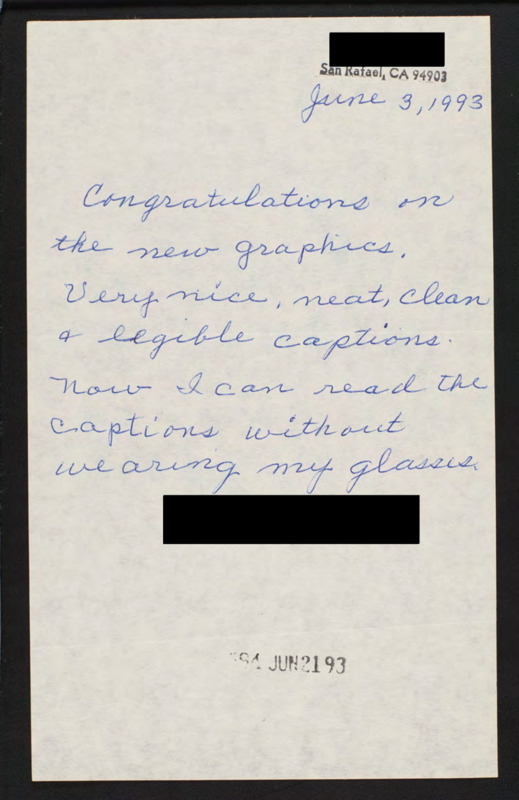 San Rafael, CA 94903
June 3, 1993
Congratulations on
the new graphics.
Very nice, neat, clean
& legible captions.
Now I can read the
captions without
wearing my glasses.
JUN 21 93